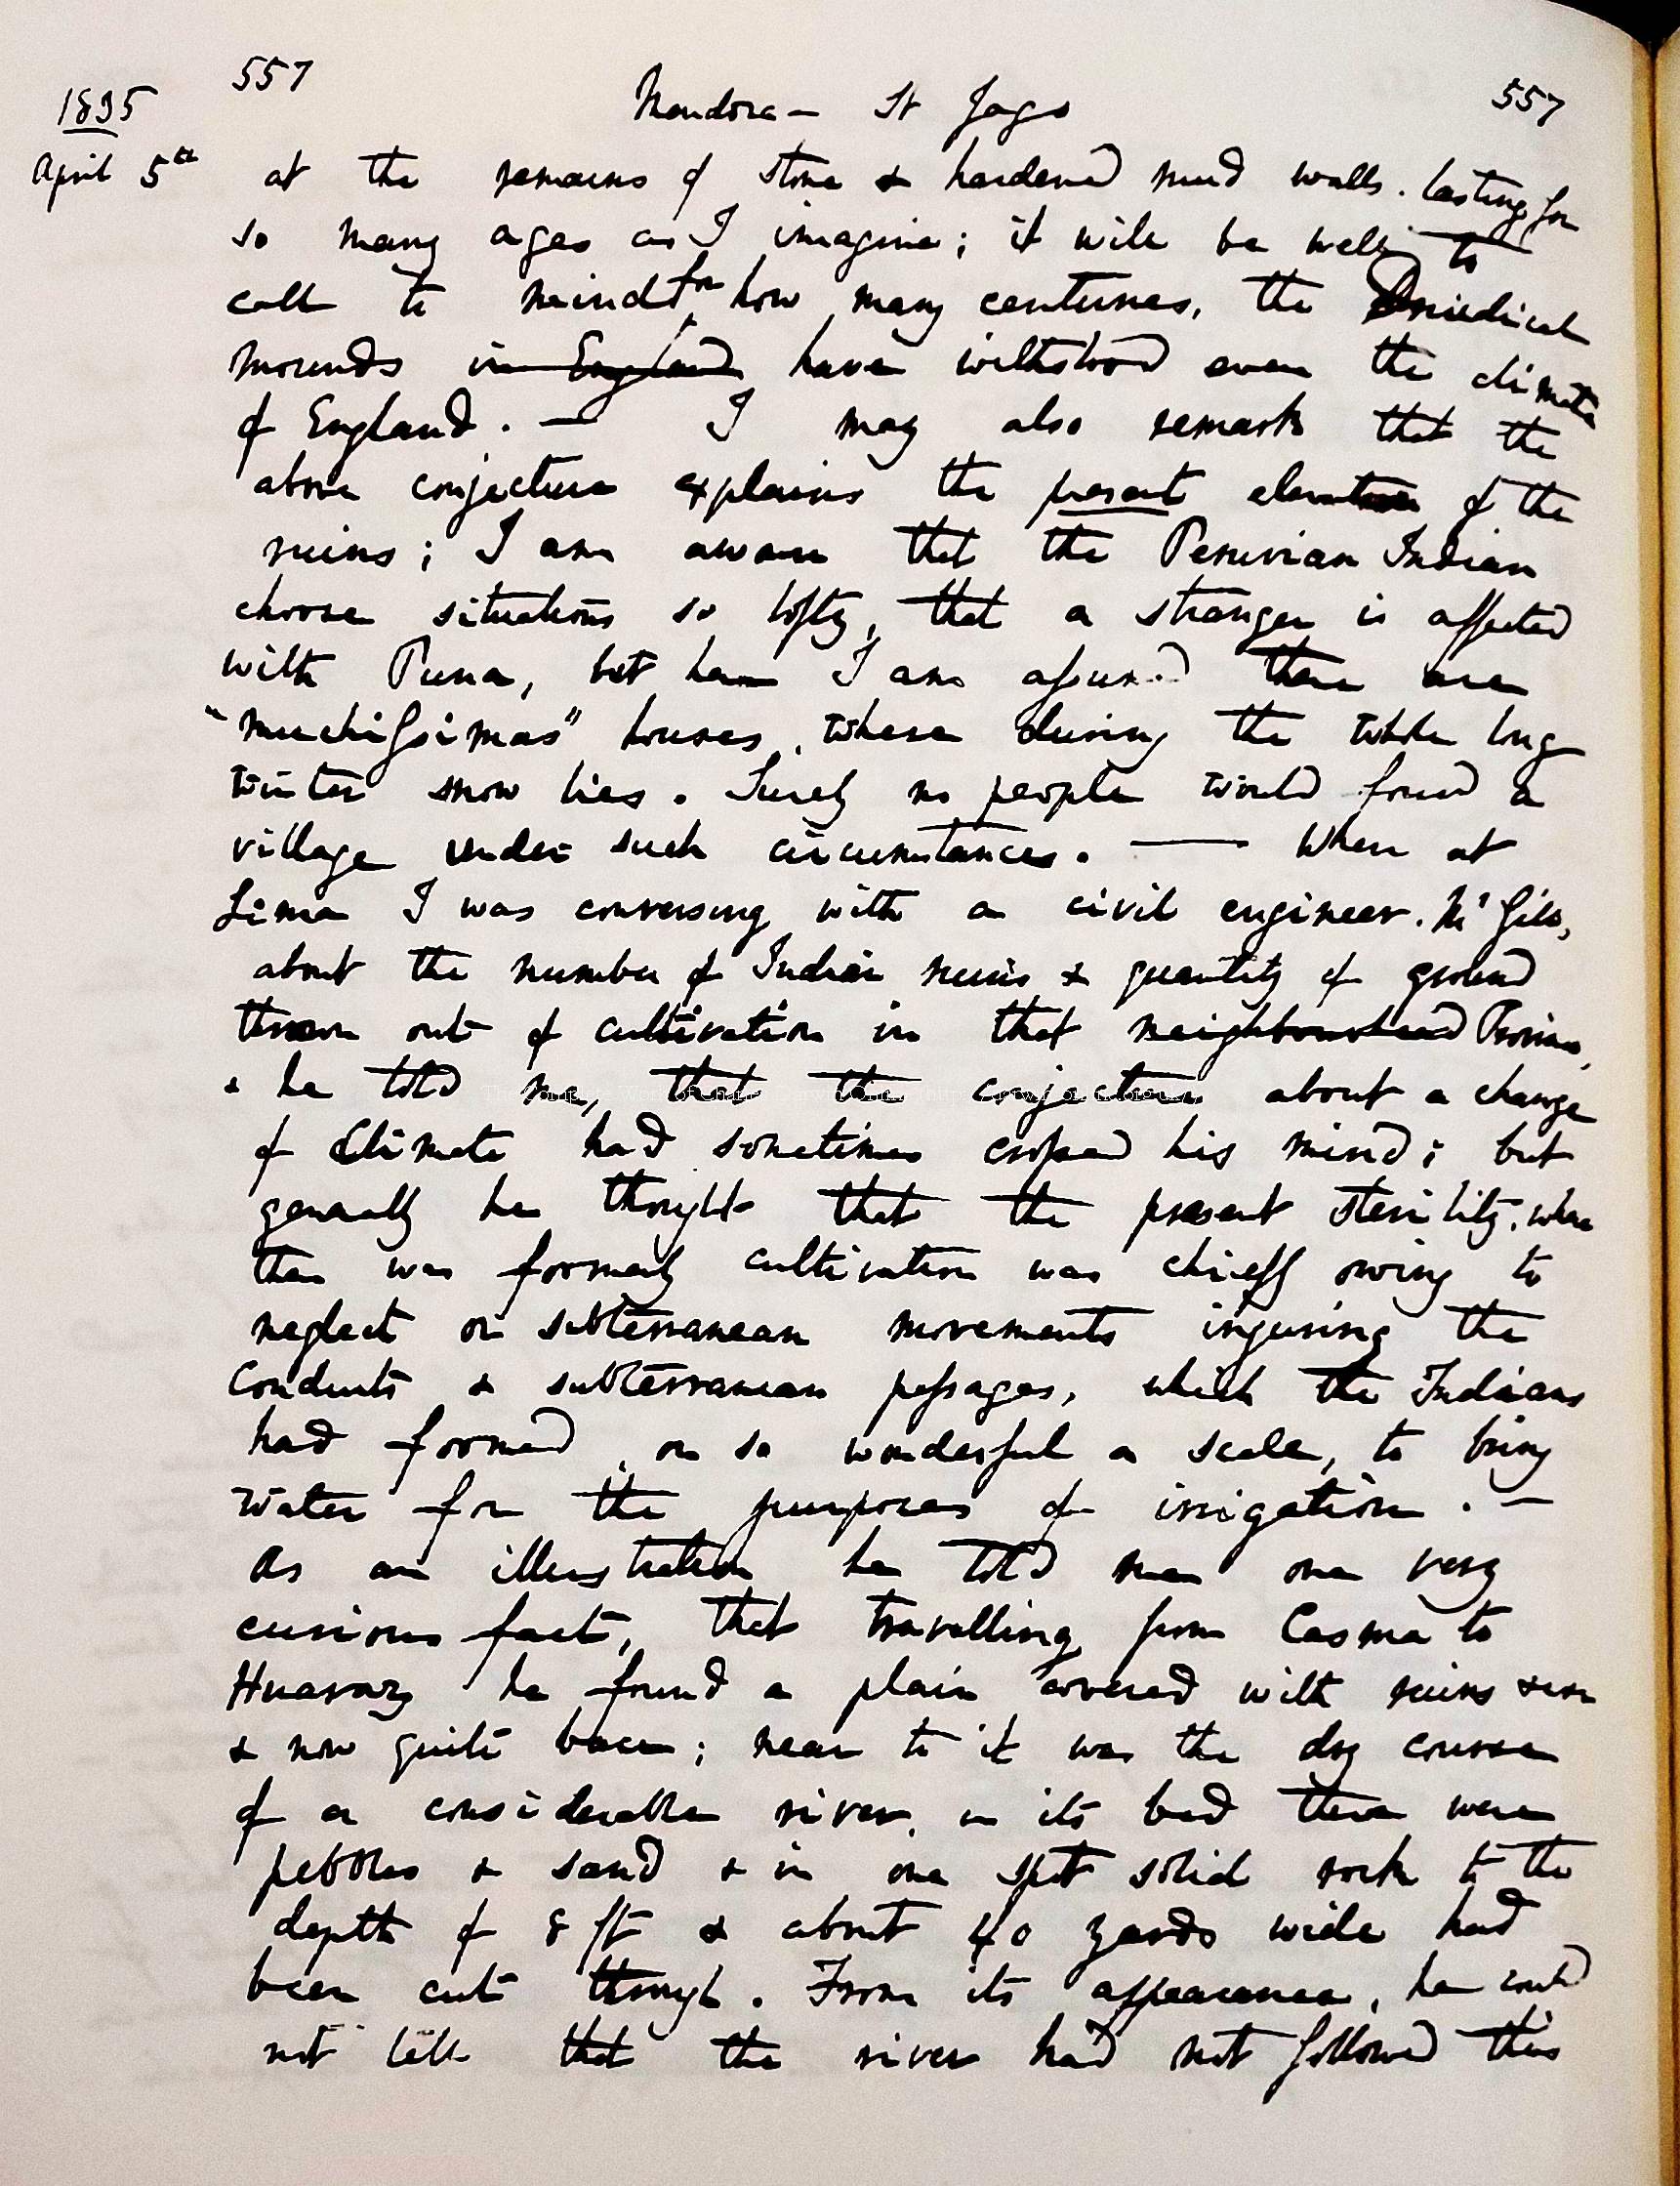 557 Mendoza — St Jago 557
1835
April 5th at the remains of stone & hardened mud walls. lasting for
so many ages as I imagine; it will be well to
call to mind for how many centuries, the Druidical
mounds in England have withstood even the climate
of England. — I may also remark that the
above conjecture explains the present elevation of the
ruins; I am aware that the Peruvian Indian
choose situations so lofty, that a stranger is affected
with Puna, but here I am assured there are
"muchissimas" houses, where during the whole long
winter snow lies. Surely no people would found a
village under such circumstances. — When at
Lima I was conversing with a civil engineer. Mr Gill,
about the number of Indian ruins & quantity of ground
thrown out of cultivation in that neighbourhead
& he told me, that the conjecture about a change
of Climate had sometimes crossed his mind; but
generally he thought that the present sterility, where
there was formerly cultivation was chiefly owing to
neglect or subterranean movements injuring the
Conduits & subterranean passages, which the Indians
had formed, on so wonderful a scale, to bring
water for the purposes of irrigation. —
As an illustration he told me one very
curious fact, that travelling from Casma to
Huaraz he found a plain covered with ruins
& now quite bare; near to it was the dry course
of a considerable river, in its bed there were
pebbles & sand & in one spot solid rock to the
depth of 8 ft & about 40 yards wide had
been cut through. From its appearance, he could
not tell that the river had not followed this